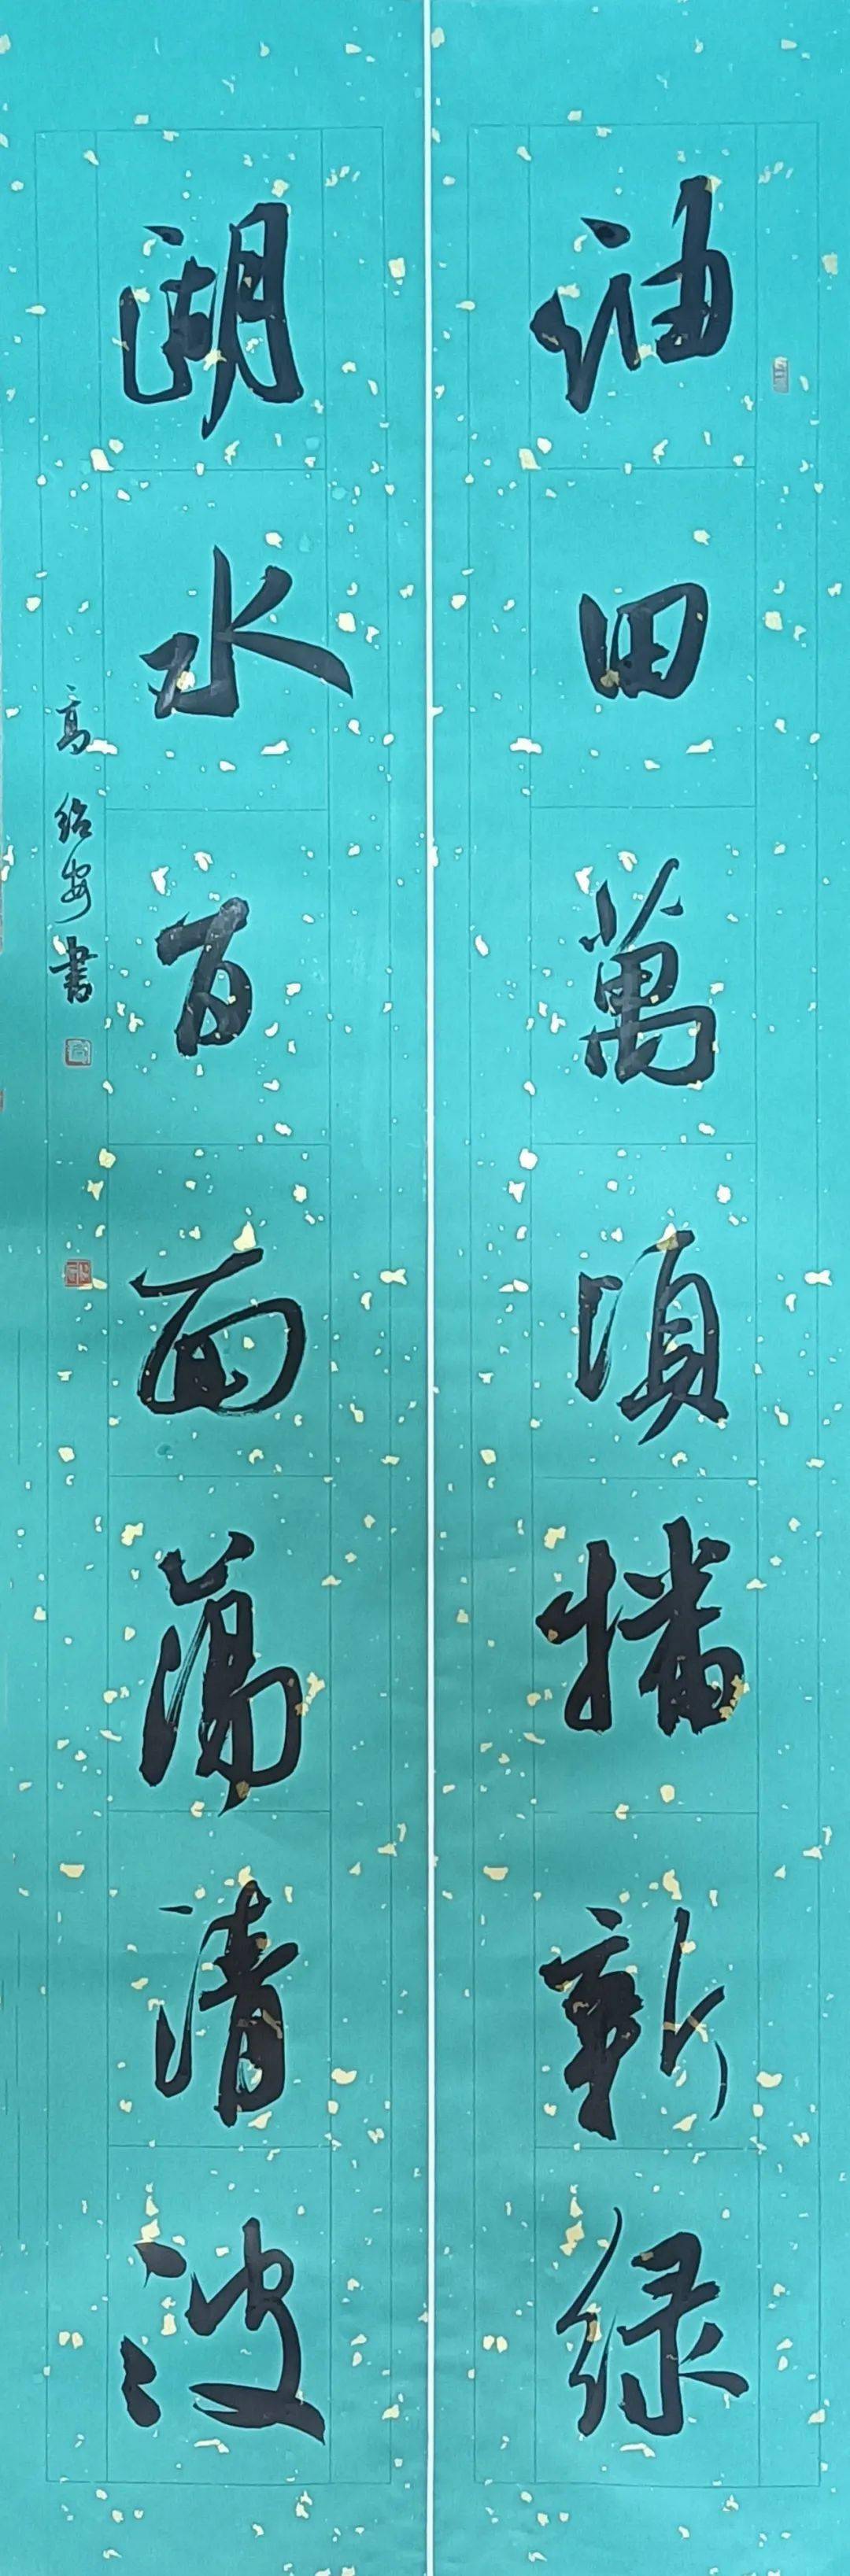 油田萬頃播新绿
湖水百面蕩清波
高绍安書